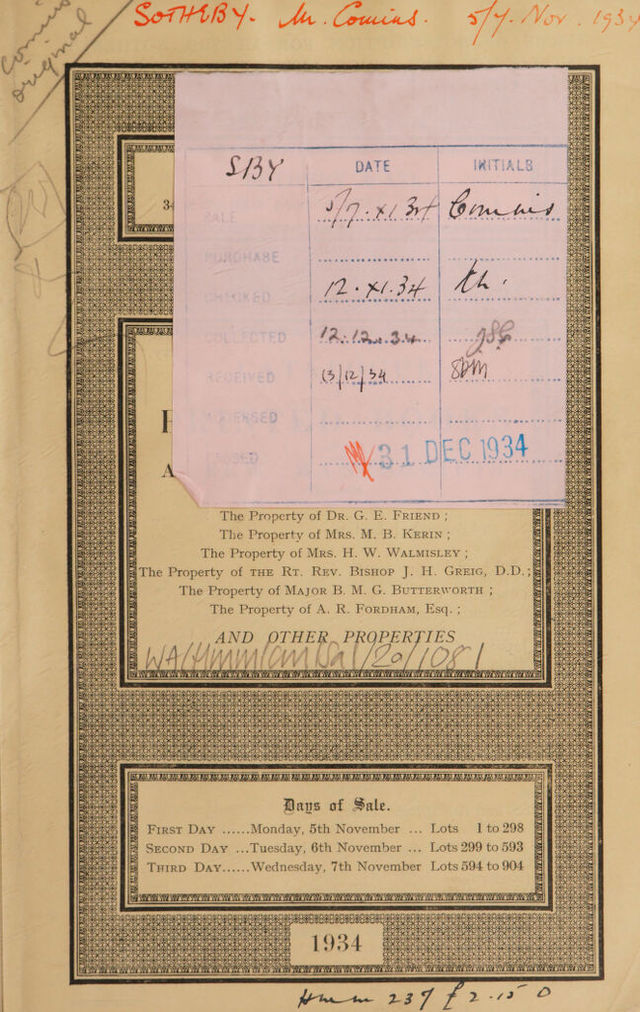 SOTHEBY. Mr. Comins. 5/7. Nov. 1934
Comins
original
SBY DATE INITIALS
SALE 5/7. XI 34 Comins
PURCHASE
CHECKED 12. XI. 34
COLLECTED 12.12.34
RECEIVED 13/12/34
31 DEC 1934
The Property of DR. G. E. FRIEND ;
The Property of MRS. M. B. KERIN ;
The Property of MRS. H. W. WALMISLEY ;
The Property of THE RT. REV. BISHOP J. H. GREIG, D.D. ;
The Property of MAJOR B. M. G. BUTTERWORTH ;
The Property of A. R. FORDHAM, ESQ. ;
AND OTHER PROPERTIES
WA/HMM/CM/Sal/20/108.1
Days of Sale.
FIRST DAY ......Monday, 5th November ... Lots 1 to 298
SECOND DAY ...Tuesday, 6th November ... Lots 299 to 593
THIRD DAY......Wednesday, 7th November Lots 594 to 904
1934
Hmm 237 £2-15 0